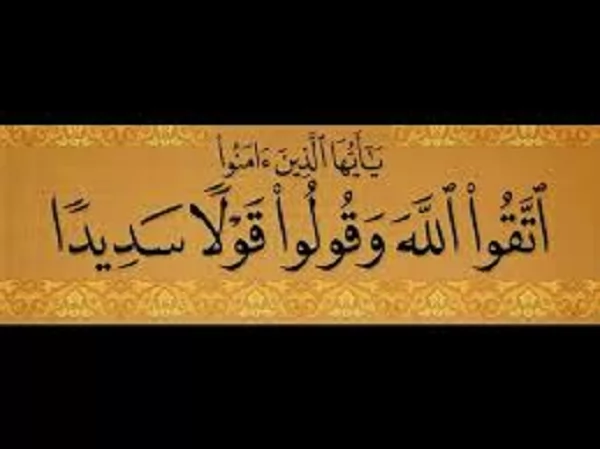 يَـٰٓأَيُّهَا ٱلَّذِينَ ءَامَنُوا۟
ٱتَّقُوا۟ ٱللَّهَ وَقُولُوا۟ قَوْلًا سَدِيدًا